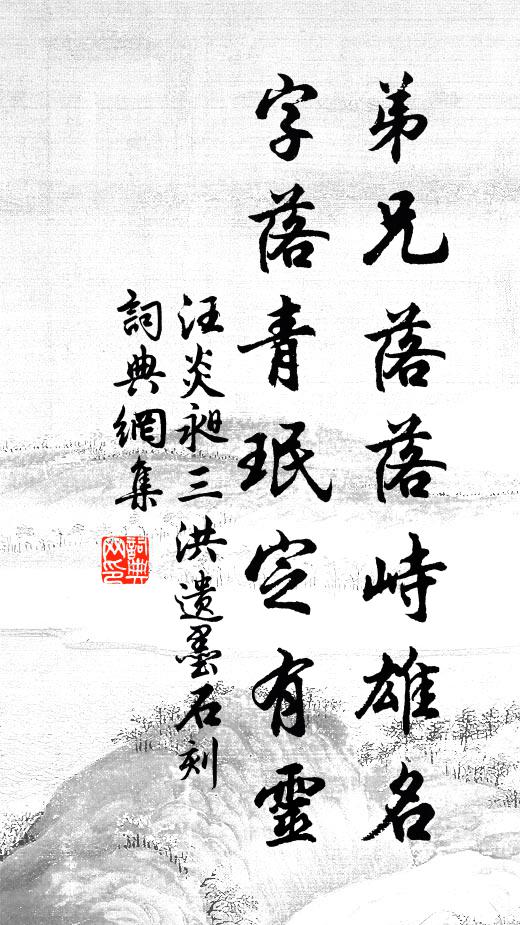 弟兄落落峙雄名
字落青珉定有靈
汪炎昶三洪遺墨石刻
詞典網集
詞典網印